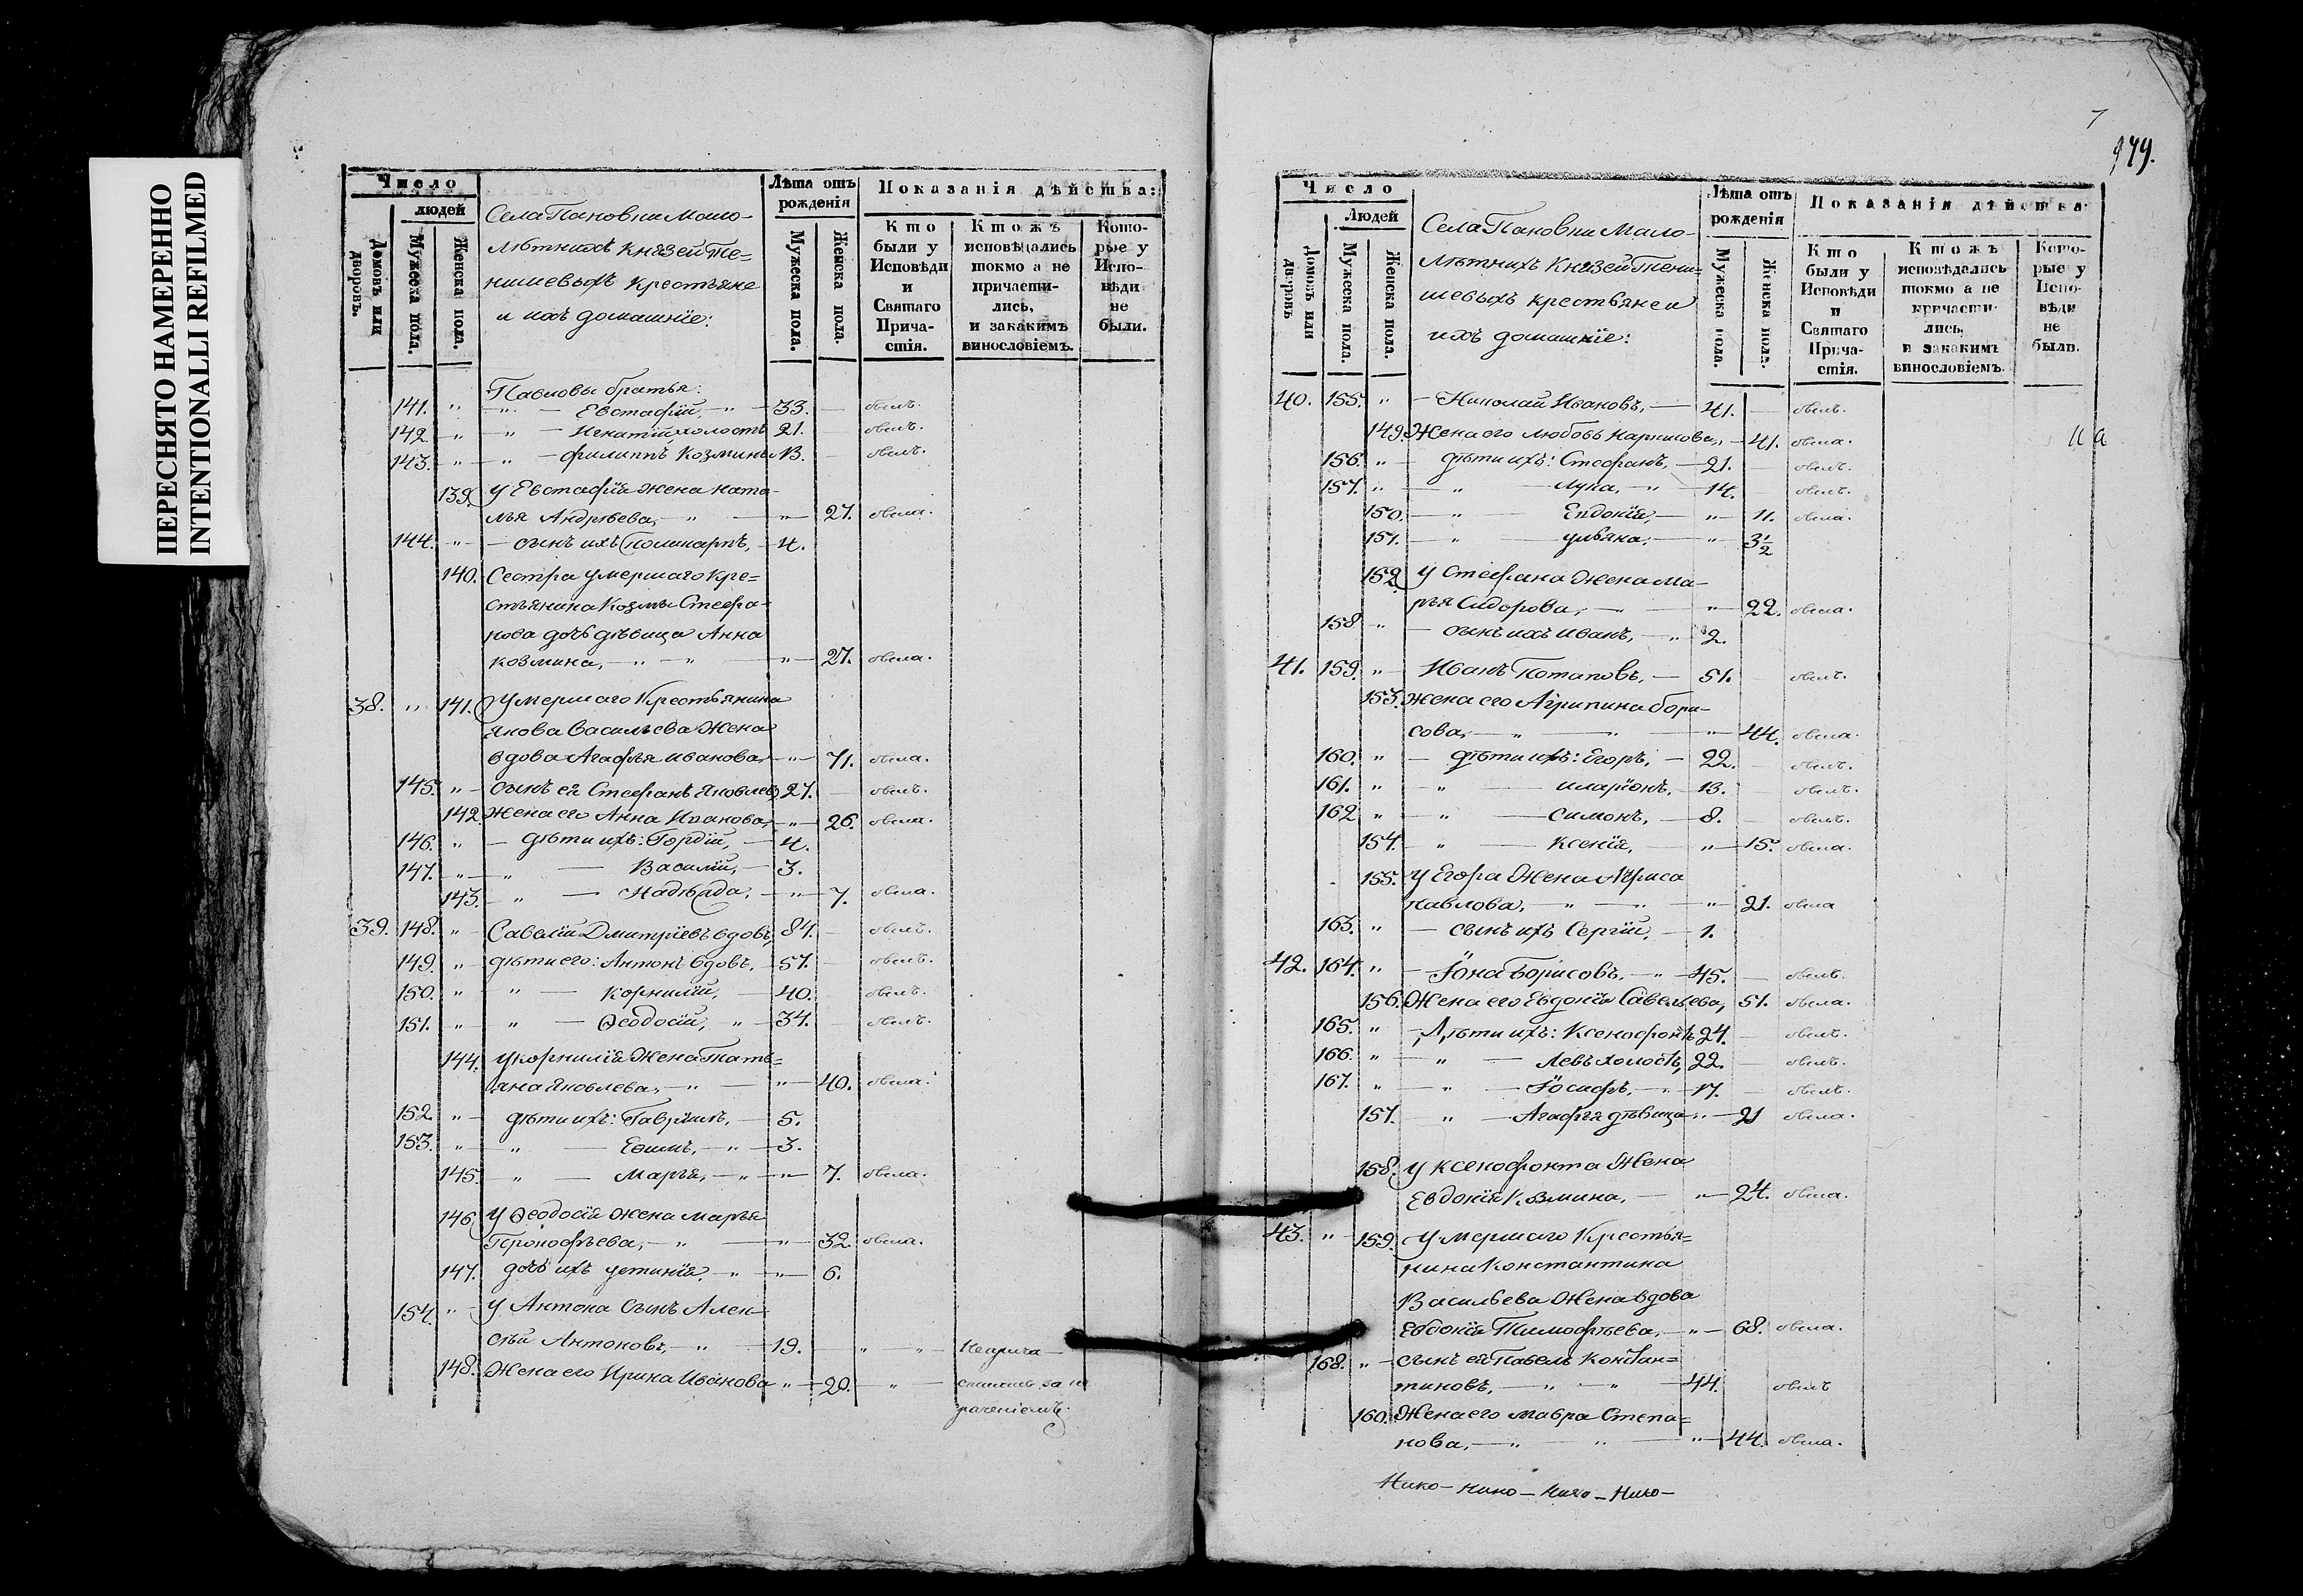 ПЕРЕСНЯТО НАМЕРЕННО
INTENTIONALLI REFILMED
Число
Домовъ или дворовъ.
людей
Мужеска пола.
Женска пола.
Села Пановки Мало-
лѣтнихъ Князей Те=
нишевыхъ крестьяне
и ихъ домашніе:
Лѣта отъ рожденія
Мужеска пола.
Женска пола.
Показанія дѣйства:
Кто были у Исповѣди и Святаго Причастія.
Ктожъ исповѣдались токмо а не причастились, и закакимъ винословіемъ.
Которые у Исповѣди не были.
Павловы братья:
141. „ — „ — Евстафій, — „ — 33. — былъ.
142. „ — „ — Игнатій, холостъ 21. — былъ.
143. „ — „ — Филиппъ Козминъ 13. — былъ.
139. У Евстафія жена Ната-
лья Андреева, — „ — „ — 27. была.
144. „ — сынъ ихъ Поликарпъ, — 4.
140. Сестра умершаго кре=
стьянина Козмы Стефа-
нова дочь дѣвица Анна
Козмина, — „ — „ — „ — 27. была.
38. „ 141. Умершаго Крестьянина
Якова Васильева Жена
вдова Агафья Иванова, — „ — 71. была.
145. „ — сынъ ея Стефанъ Яковлев, 27. — былъ.
142. Жена его Анна Иванова, — „ — 26. была.
146. „ — дѣти ихъ: Гордій, — 4.
147. „ — „ — Василій, — 3.
143. — „ — Надѣжда, — „ — 7. была.
39. 148. „ Савелій Дмитріевъ вдовъ, 84. — былъ.
149. „ дѣти его: Антонъ вдовъ, — 57. — былъ.
150. „ „ — Корнилій, — 40. былъ.
151. „ „ — Ѳеодосій, „ — 34. — былъ.
144. У Корнилія Жена Тать=
яна Яковлева, — „ — „ — 40. была.
152. „ — дѣти ихъ: Гавріилъ, — 5.
153. „ — „ — Ефимъ, — „ — 3.
145. — „ — Марья, — „ — „ — 7. была.
146. У Ѳеодосія жена Марья
Прокофьева, — „ — „ — 32. была.
147. дочь ихъ Устинія, „ — „ — 6.
154. „ — У Антона сынъ Алек-
сѣй Антоновъ, — „ — 19. — „ — „ — Неприча-
148. Жена его Ирина Иванова „ — 20. — „ — стились за не
раченіемъ.
7
979.
Число
Домовъ или дворовъ
Людей
Мужеска пола.
Женска пола.
Села Пановки Мало-
лѣтнихъ Князей Тени=
шевыхъ крестьяне и
ихъ домашніе:
Лѣта отъ рожденія
Мужеска пола.
Женска пола.
Показанія дѣйства
Кто были у Исповѣди и Святаго Причастія.
Ктожъ исповѣдались токмо а не причастились, и закакимъ винословіемъ.
Которые у Исповѣди не были.
40. 155. „ — Николай Ивановъ, — 41. — былъ.
149. Жена его Любовь Карпилова, „ — 41. была.
156. „ — дѣти ихъ: Стефанъ, — 21. — былъ.
157. „ — „ — Лука, — „ — 14. — былъ.
150. — „ — Евдокія, — „ — 11. была.
151. — „ — Ульяна, — „ — 3 1/2
152. У Стефана жена Ма-
рья Сидорова, — „ — 22. была.
158. „ — сынъ ихъ Иванъ, — „ 2.
41. 159. „ — Иванъ Потаповъ, — 51. — былъ.
153. Жена его Агрипина Бори-
сова, — „ — „ — „ — 44. была.
160. „ — дѣти ихъ: Егоръ, — 22. — былъ.
161. „ — „ — Иларіонъ, — 13. — былъ.
162. „ — „ — Симонъ, — 8. — былъ.
154. — „ — Ксенія, — „ — 15. была.
155. У Егора Жена
Павлова, — „ — „ — „ — 21. была
163. „ — сынъ ихъ Сергій, — 1.
42. 164. „ — Іона Борисовъ, — „ — 45. — былъ.
156. Жена его Евдокія Савельева, 51. была.
165. „ — Дѣти ихъ: Ксенофонтъ 24. — былъ.
166. „ — „ — Левъ холостъ, 22. — былъ.
167. „ — „ — Іосифъ, — „ — 17. — былъ.
157. — „ — Агафья дѣвица „ — 21 была.
158. У Ксенофонта Жена
Евдокія Козмина, — „ — 24. была.
43. „ — 159. Умершаго Крестья=
нина Константина
Васильева Жена вдова
Евдокія Тимофѣева, — „ — 68. была.
168. „ — сынъ ея Павелъ Констан=
тиновъ, — „ — „ — 44. былъ
160. Жена его Мавра Степа=
нова, — „ — „ — „ — 44. была.
Нико — Нико — Нико — Нико —